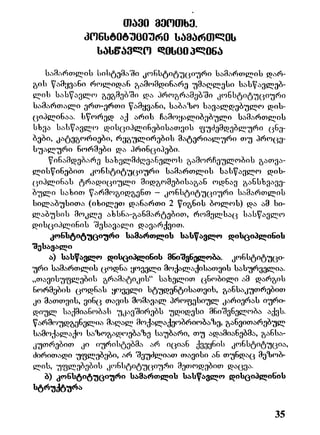 თავი მეოთხე.
კონსტიტუციური სამართლის
სასწავლო დისციპლინა
სამართლის სისტემაში კონსტიტუციური სამართლის დარ-
გის წამყვანი როლიდან გამომდინარე უმაღლესი სასწავლებ-
ლის სასწავლო გეგმებში და პროგრამებში კონსტიტუციური
სამართალი ერთ-ერთი წამყვანი, საბაზო სავალდებულო დის-
ციპლინაა. სწორედ აქ არის ჩამოყალიბებული სამართლის
სხვა სასწავლო დისციპლინებისათვის ფუძემდებლური ცნე-
ბები, კატეგორიები, რეგულირების მატერიალური თუ პროცე-
სუალური ნორმები და პრინციპები.
წინამდებარე სახელმძღვანელოს გამორჩეულობის გათვა-
ლისწინებით კონსტიტუციური სამართლის სასწავლო დის-
ციპლინას ტრადიციული მიდგომებისაგან ოდნავ განსხვავე-
ბული სახით წარმოგიდგენთ – კონსტიტუციური სამართლის
სილაბუსითა (იხილეთ დანართი 2 წიგნის ბოლოს) და ამ სი-
ლაბუსის მოკლე ახსნა-განმარტებით, რომელსაც სასწავლო
დისციპლინის შესავალი დავარქვით.
კონსტიტუციური სამართლის სასწავლო დისციპლინის
შესავალი
ა) სასწავლო დისციპლინის მნიშვნელობა. კონსტიტუცი-
ური სამართლის ცოდნა ყოველი მოქალაქისათვის სასურველია.
„თავისუფლების გრამატიკის“ სახელით ცნობილი ამ დარგის
ნორმების ცოდნას ყოველი სტუდენტისათვის, განსაკუთრებით
კი მათთვის, ვინც თავის მომავალ პროფესიულ კარიერას იური-
დიულ საქმიანობას უკავშირებს უდიდესი მნიშვნელობა აქვს.
წარმოუდგენელია მაღალ მოქალაქეობრიობაზე, განვითარებულ
სამოქალაქო საზოგადოებაზე საუბარი, თუ ადამიანებმა, განსა-
კუთრებით კი იურისტებმა არ იციან ქვეყნის კონსტიტუცია,
ძირითადი უფლებები, არ შეუძლიათ თავისი ან თუნდაც მეზობ-
ლის, უფლებების კონსტიტუციური მეთოდებით დაცვა.
ბ) კონსტიტუციური სამართლის სასწავლო დისციპლინის
სტრუქტურა
35